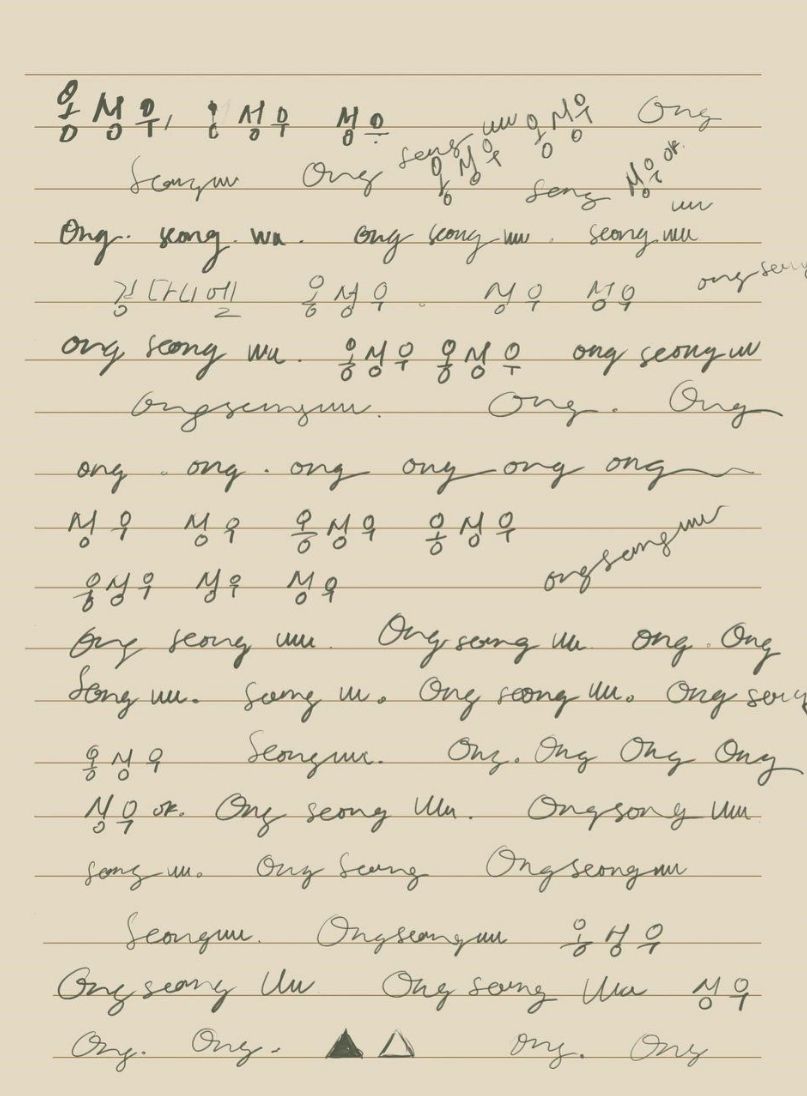 옹성우, 옹 성우 성우 seong wu 옹성우 Ong
Seongwu Ong 옹성우 seong wu 성우 ok.
Ong. seong. wu. ong seong wu. seong.wu
강다니엘 옹성우. 성우 성우 ong seong
ong seong wu. 옹성우 옹성우 ong seongwu
Ongseongwu. Ong. Ong
ong. ong. ong ong ong ong
성우 성우 옹성우 옹성우
옹성우 성우 성우 ongseongwu
Ong seong wu Ong seong wu ong. Ong
Seong wu. Seong wu. Ong seong wu. Ong seong
옹성우 Seongwu. Ong. Ong Ong Ong
성우 ok. Ong seong wu. Ongsong wu
seong wu. Ong Seong Ongseongwu
Seongwu. Ongseongwu 옹성우
Ongseong wu Ong seong wu 성우
Ong. Ong. ▲ △ ong. Ong